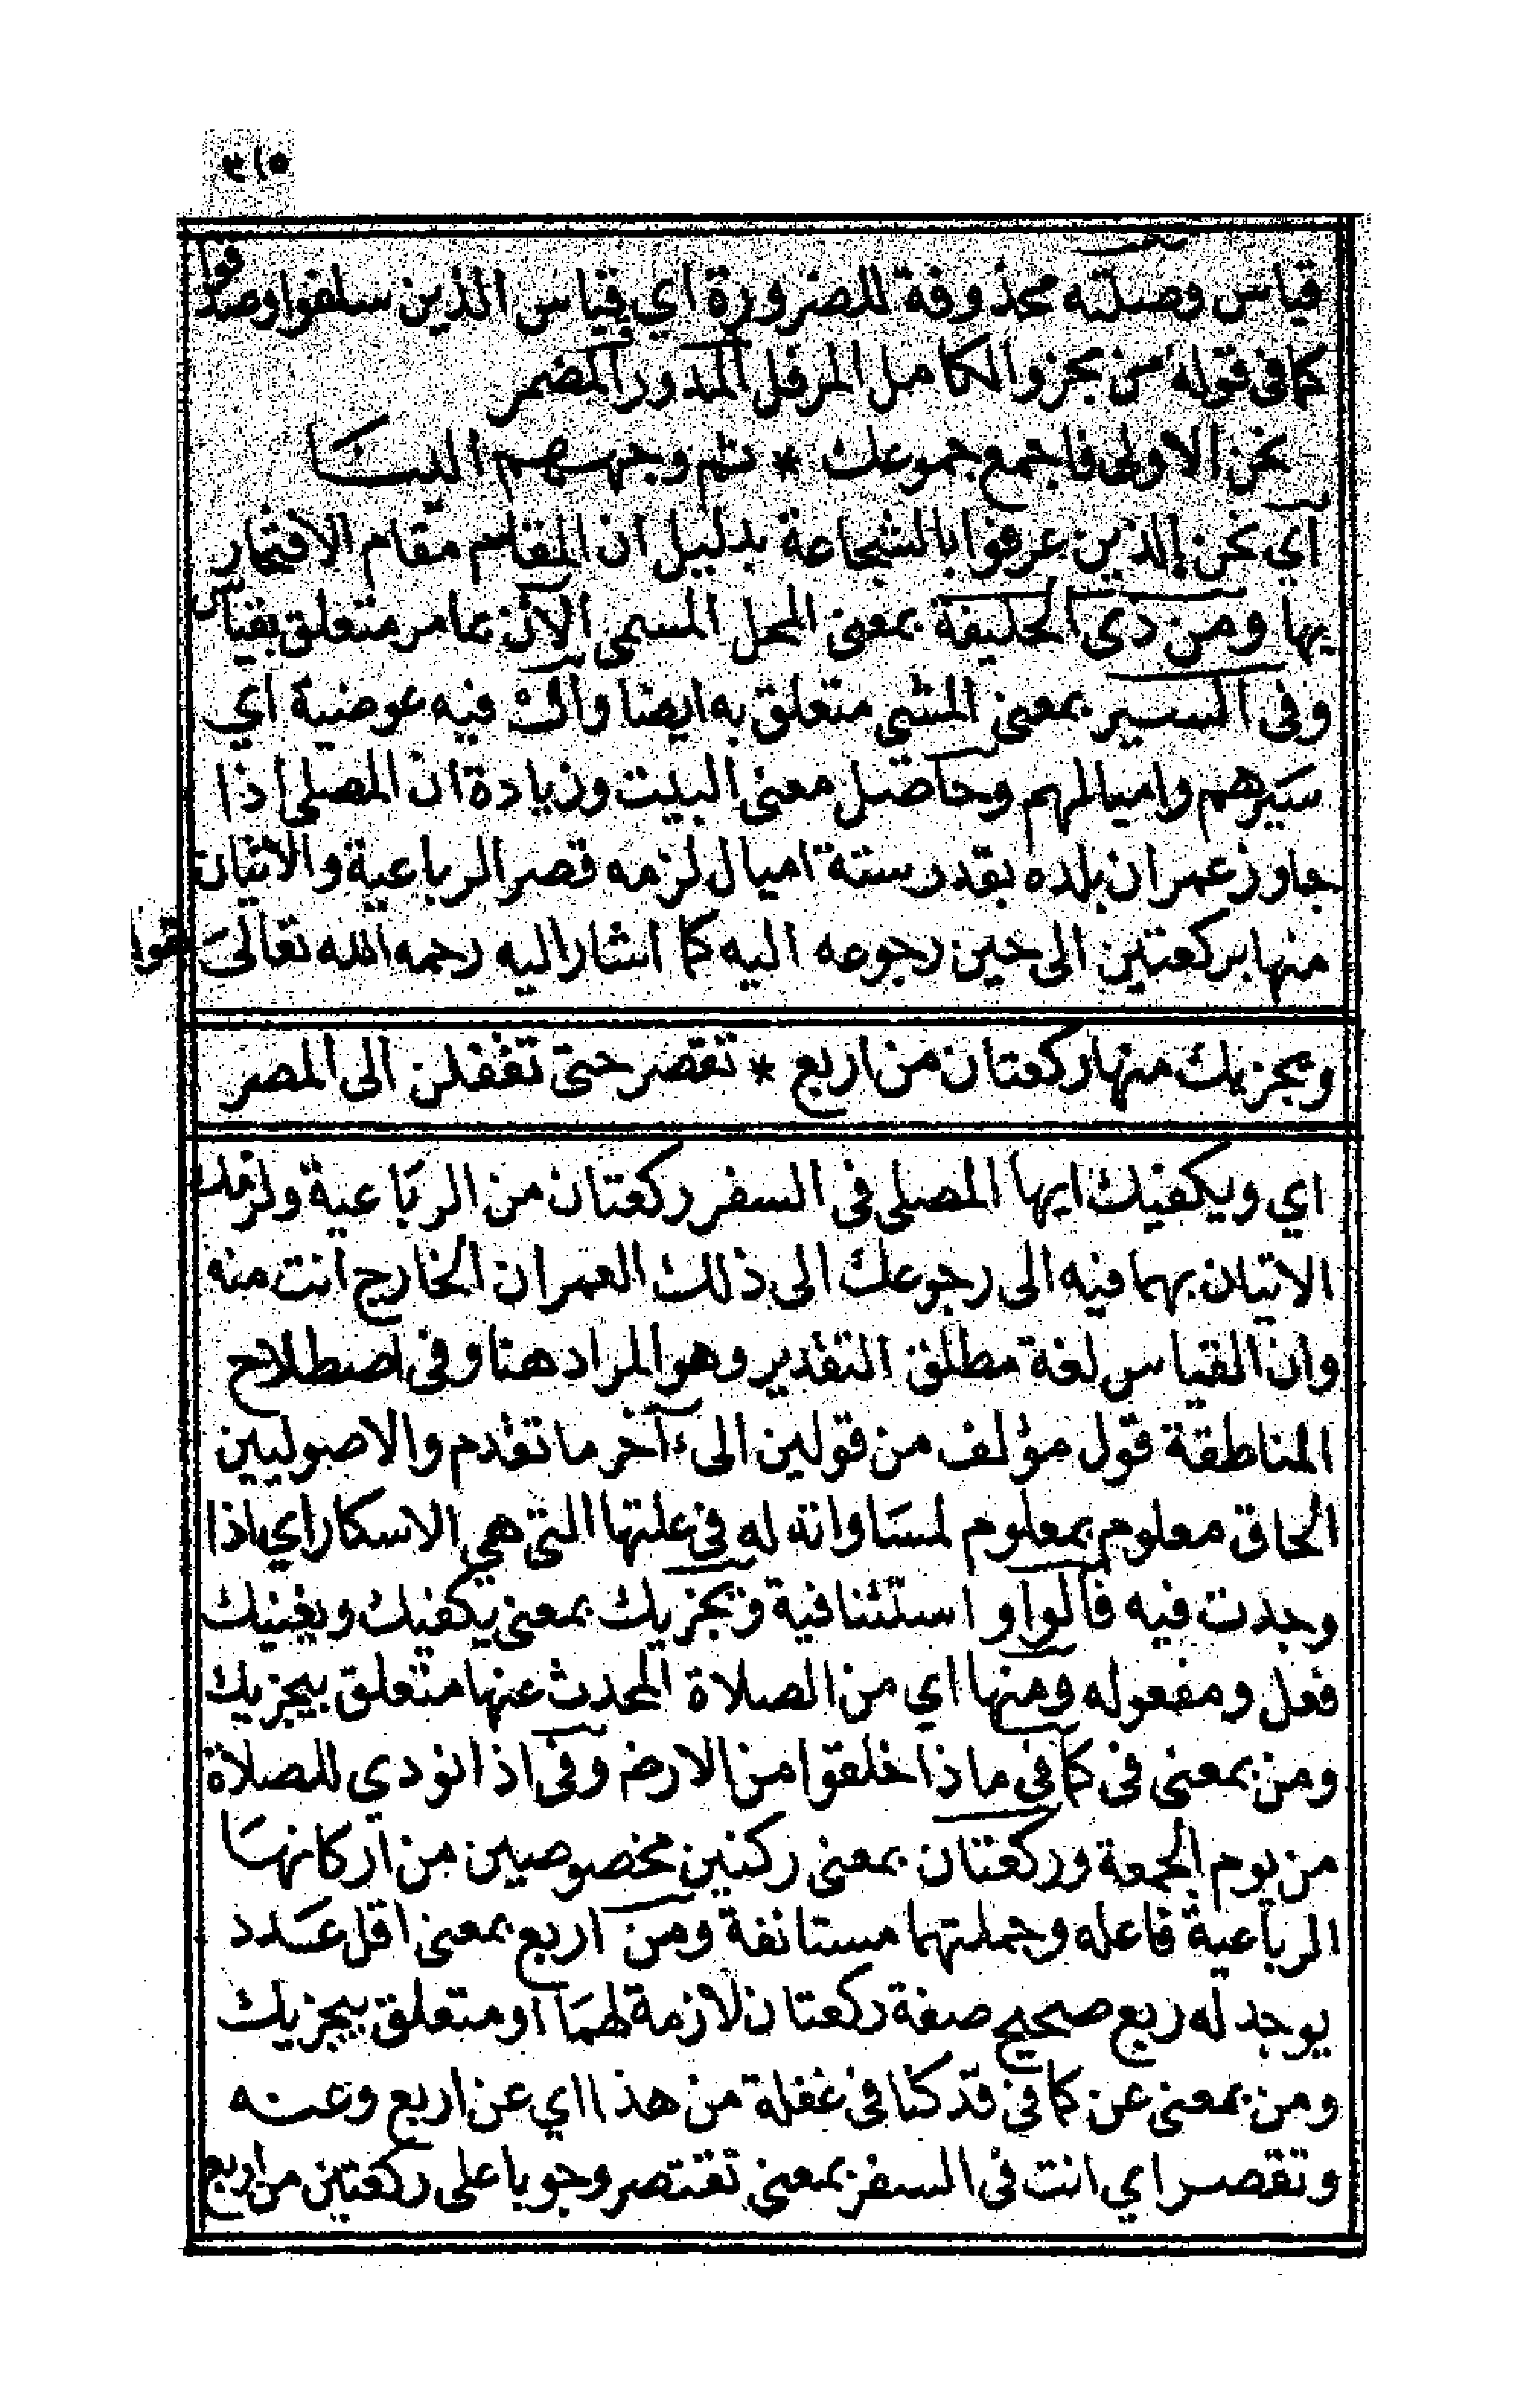 ٣١٥
قياس وصلته محذوفة للضرورة اي قياس الذين سلفوا وصدقوا
كما فى قوله من مجزو الكامل المرفل المدور المضمر
نحن الاولى فاجمع جموعك * ثم وجههم الينَا
اي نحن الذين عرفوا بالشجاعة بدليل ان المقام مقام الافتخار
بها ومن ذى الحليفة بمعنى المحل المسمى الآن بما مر متعلق بقياس
وفى السير بمعنى المشي متعلق به ايضا وال فيه عوضية اي
سَيرهم واميالهم وحاصل معنى البيت وزيادة ان المصلى إذا
جاوز عمران بلده بقدر ستة اميال لزمه قصر الرباعية والاتيان
منها بركعتين الى حين رجوعه اليه كما اشار اليه رحمه الله تعالىَ بقوله
ويجزيك منها ركعتان من اربع * تقصر حتى تقفلن الى المصر
اي ويكفيك ايها المصلى فى السفر ركعتان من الربَاعية ولزمك
الاتيان بهما فيه الى رجوعك الى ذلك العمران الخارج انت منه
وان القياس لغة مطلق التقدير وهو المراد هنا وفى اصطلاح
المناطقة قول مؤلف من قولين الى ءاخر ما تقدم والاصوليين
الحاق معلوم بمعلوم لمسَاواته له فى علتها التى هي الاسكار اي اذا
وجدت فيه فالواو استئنافية ويجزيك بمعنى يكفيك ويغنيك
فعل ومفعوله ومنها اي من الصلاة المحدث عنها متعلق بيجزيك
ومن بمعنى فى كما فى ماذا خلقوا من الارض وفى اذا نودي للصلاة
من يوم الجمعة وركعتان بمعنى ركنين مخصوصين من اركانهَا
الرباعية فاعله وجملتهما مستانفة ومن اربع بمعنى اقل عَدد
يوجد له ربع صحيح صفة ركعتان لازمة لهمَا او متعلق بيجزيك
ومن بمعنى عن كما فى قد كنا فى غفلة من هذا اي عن اربع وعنه
وتقصر اي انت فى السفر بمعنى تقتصر وجوبا على ركعتين من اربع